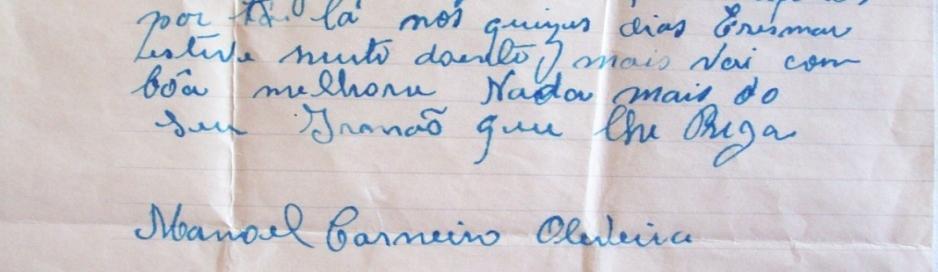 por lá nos quizes dias Erismar
estive muto doente, mais vai com
bôa melhora Nada mais do
seu Irmaõ que lhe Preza
Manoel Carneiro Oliveira